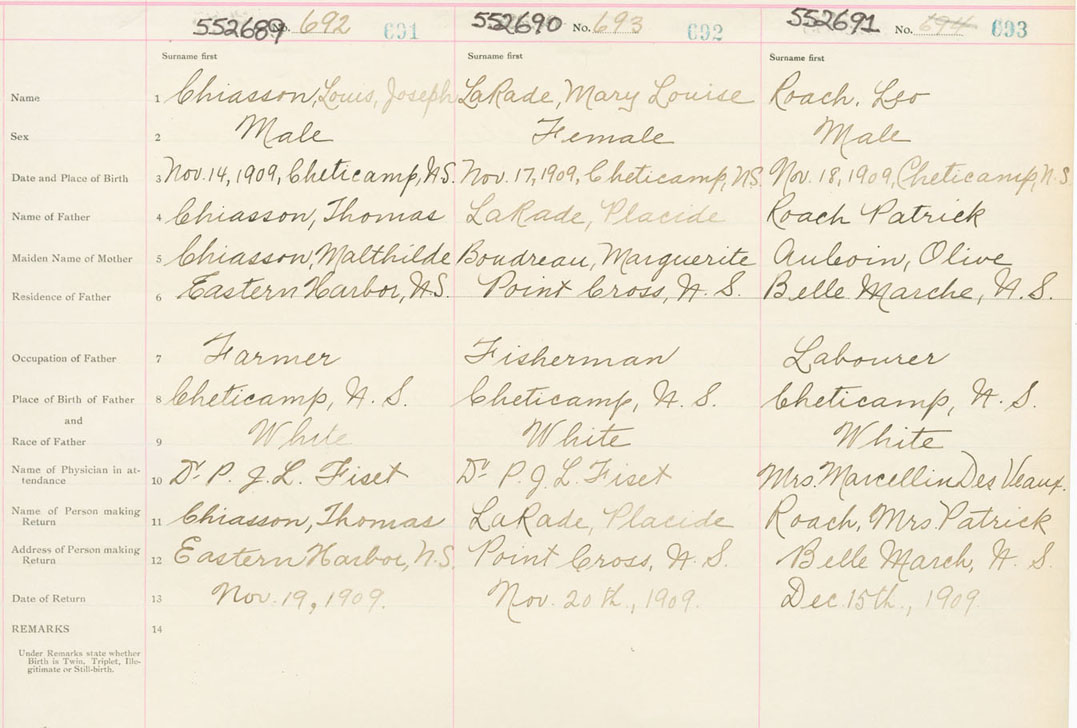 552689 No. 692 691 552690 No. 693 692 552691 No. 694 693
Surname first Surname first Surname first
Name 1 Chiasson, Louis, Joseph LaRade, Mary Louise Roach, Leo
Sex 2 Male Female Male
Date and Place of Birth 3 Nov. 14, 1909, Cheticamp, N.S. Nov. 17, 1909, Cheticamp, N.S. Nov. 18, 1909, Cheticamp, N.S.
Name of Father 4 Chiasson, Thomas LaRade, Placide Roach Patrick
Maiden Name of Mother 5 Chiasson, Malthilde Boudreau, Marguerite AuCoin, Olive
Residence of Father 6 Eastern Harbor, N.S. Point Cross, N. S. Belle Marche, N. S.
Occupation of Father 7 Farmer Fisherman Labourer
Place of Birth of Father 8 Cheticamp, N. S. Cheticamp, N. S. Cheticamp, N. S.
and
Race of Father 9 White White White
Name of Physician in at-
tendance 10 Dr P. J. L. Fiset Dr P. J. L. Fiset Mrs. Marcellin DesVeaux.
Name of Person making
Return 11 Chiasson, Thomas LaRade, Placide Roach, Mrs. Patrick
Address of Person making
Return 12 Eastern Harbor, N.S. Point Cross, N. S. Belle March, N. S.
Date of Return 13 Nov. 19, 1909. Nov. 20th, 1909. Dec. 15th, 1909.
REMARKS 14
Under Remarks state whether
Birth is Twin, Triplet, Ille-
gitimate or Still-birth.